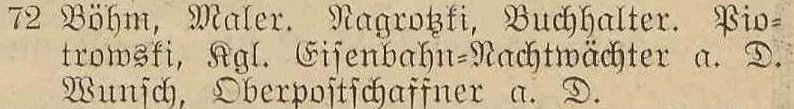 72 Böhm, Maler. Nagrotzki, Buchhalter. Pio-
trowski, Kgl. Eisenbahn-Nachtwächter a. D.
Wunsch, Oberpostschaffner a. D.